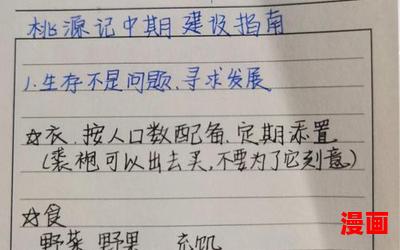 桃源记中期建设指南
1.生存不是问题、寻求发展
☆衣、按人口数配备、定期添置
(裘袍可以出去买,不要为了它刻意)
☆食
野菜 野果 充饥
漫画